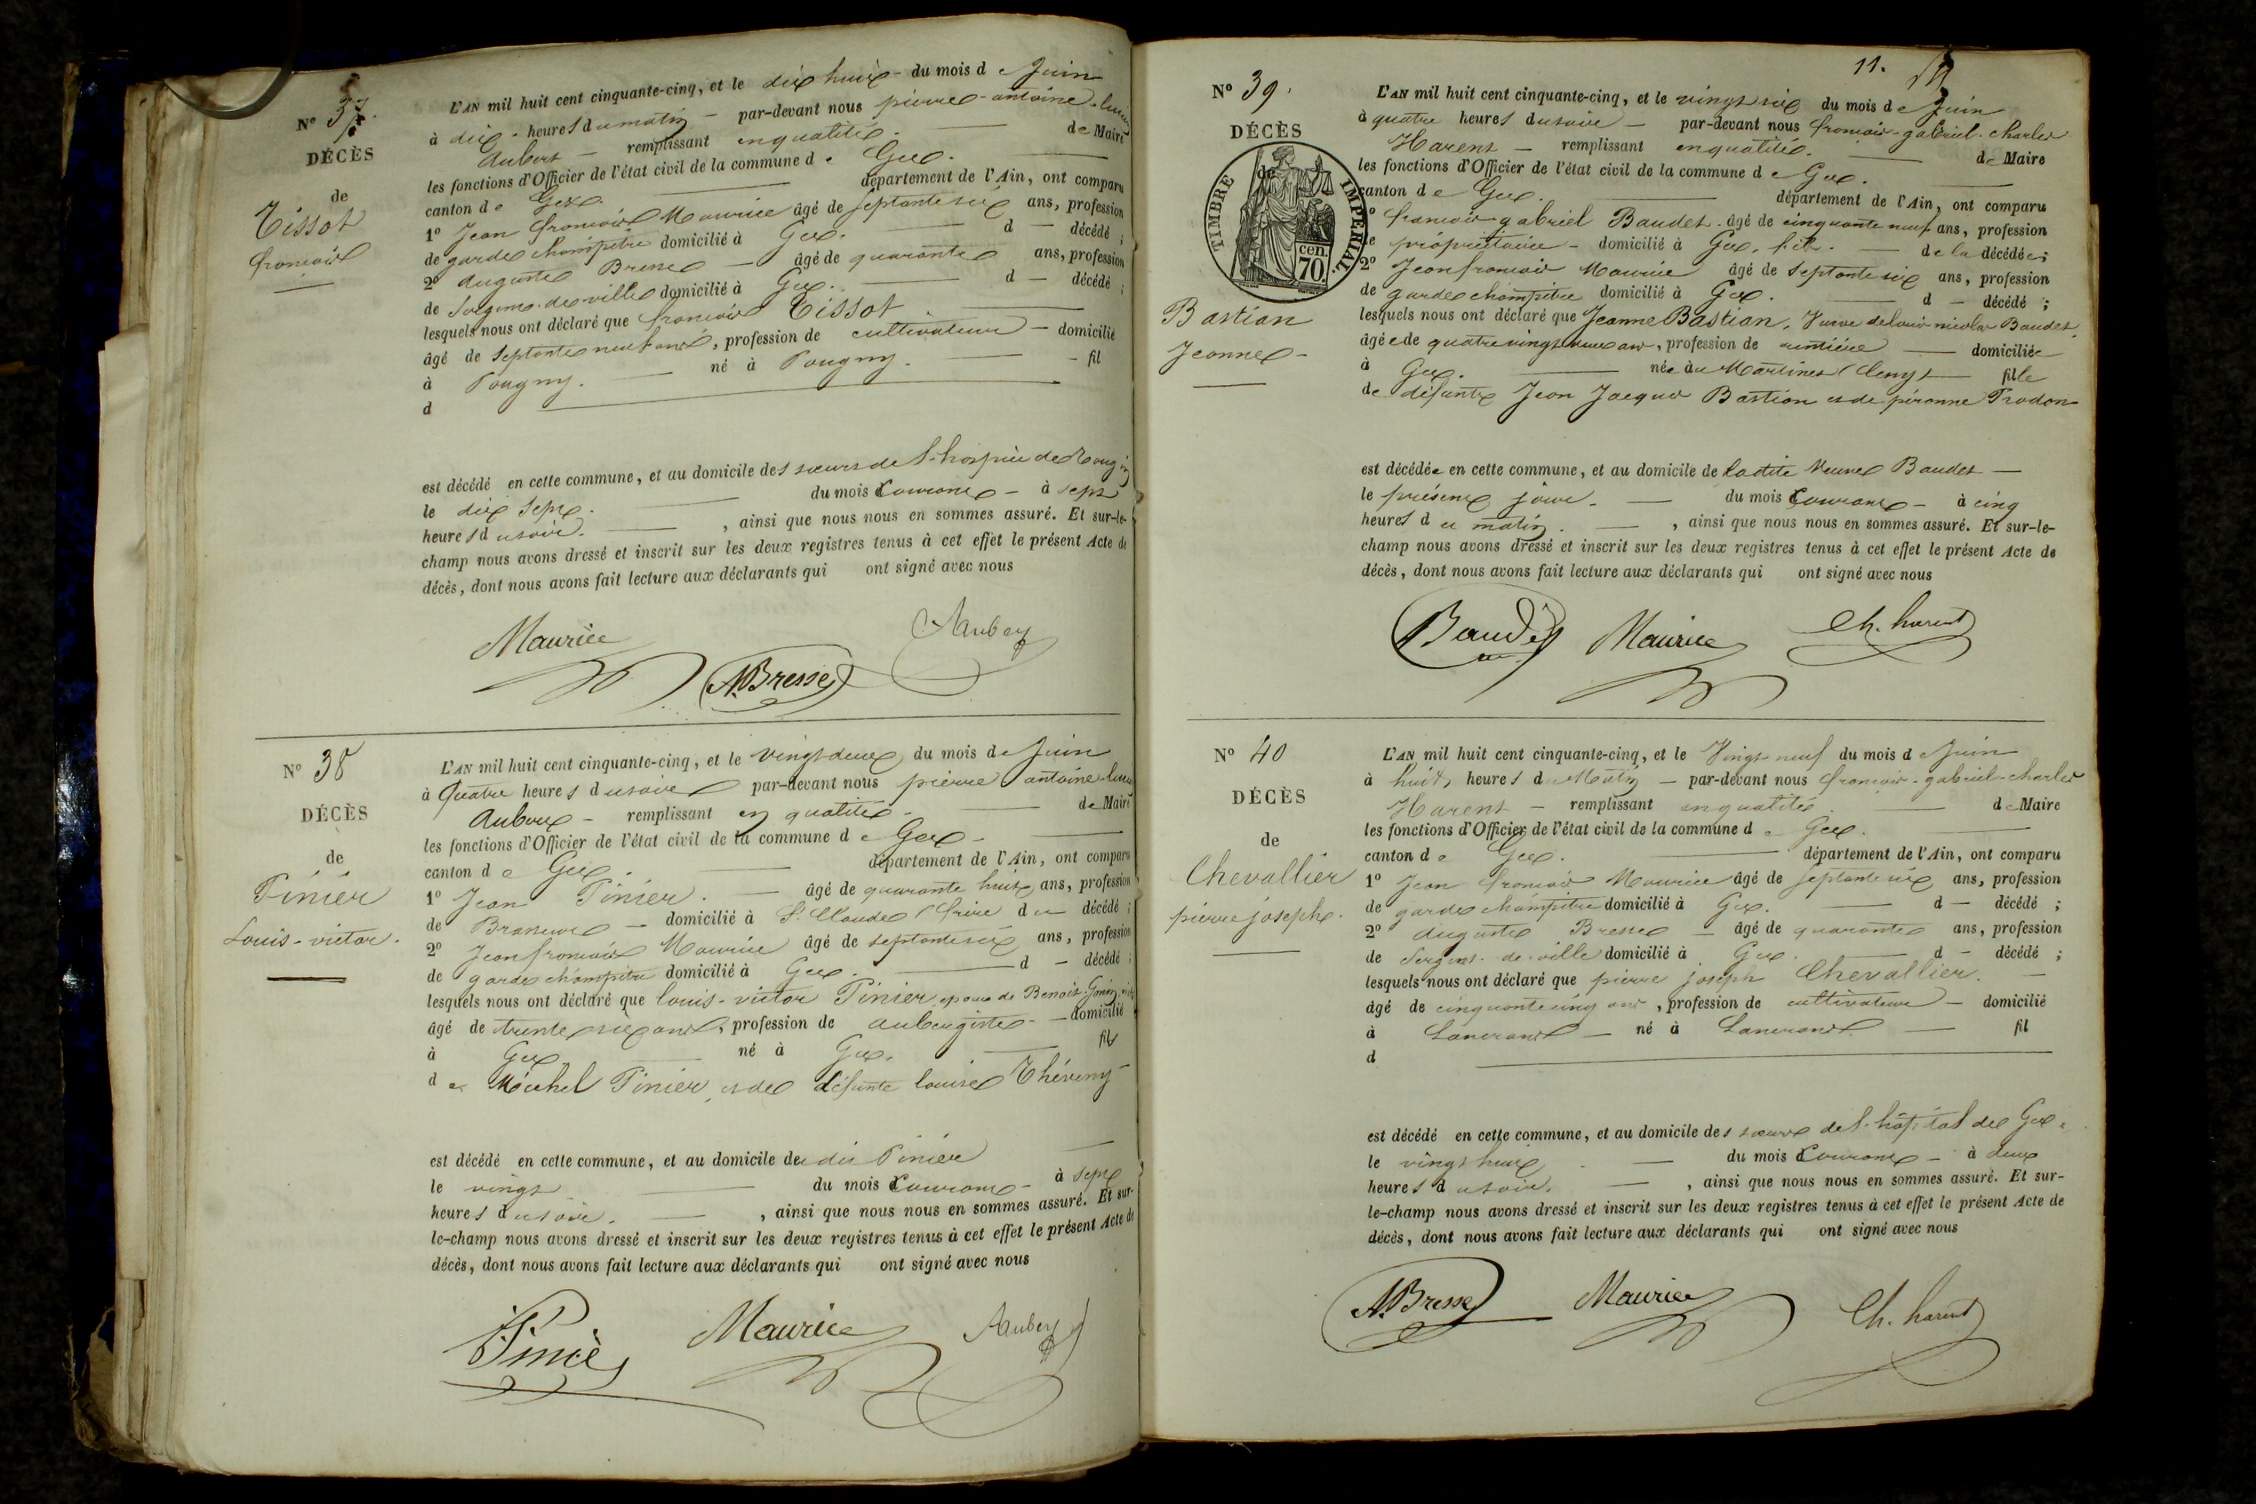 Nº 37.
DÉCÈS
de
Tissot
françois
L'AN mil huit cent cinquante-cinq, et le dix huit du mois de Juin
à dix heures du matin par-devant nous pierre-antoine-lucien
Aubert remplissant en qualité de Maire
les fonctions d'Officier de l'état civil de la commune de Gex.
canton de Gex. département de l'Ain, ont comparu
1º Jean françois Maurice âgé de septante six ans, profession
de garde champêtre domicilié à Gex. d décédé ;
2º auguste Bresse âgé de quarante ans, profession
de Sergent-de-ville domicilié à Gex. d décédé ;
lesquels nous ont déclaré que françois Tissot
âgé de septante neuf ans, profession de cultivateur domicilié
à Pougny. né à Pougny. fil
d
est décédé en cette commune, et au domicile des sœurs de l'hospice de Tougin
le dix sept. du mois Courant à sept
heures du soir. , ainsi que nous nous en sommes assuré. Et sur-le-
champ nous avons dressé et inscrit sur les deux registres tenus à cet effet le présent Acte de
décès, dont nous avons fait lecture aux déclarants qui ont signé avec nous
Maurice
A. Bresse
Nº 38
DÉCÈS
de
Pinier
Louis-victor.
L'AN mil huit cent cinquante-cinq, et le Vingt deux du mois de Juin
à Quatre heures du soir par-devant nous pierre antoine-lucien
remplissant en qualité de Maire
les fonctions d'Officier de l'état civil de la commune de Gex
canton de Gex. département de l'Ain, ont comparu
1º Jean Pinier. âgé de quarante huit ans, profession
de Brasseur domicilié à St Claude frère du décédé ;
2º Jean françois Maurice âgé de septante six ans, profession
de garde champêtre domicilié à Gex. d décédé ;
lesquels nous ont déclaré que louis-victor Pinier, epoux de Benoit
âgé de trente six ans, profession de aubergiste domicilié
à Gex né à Gex. fils
de Michel Pinier, et de défunte louise Théveny
est décédé en cette commune, et au domicile du dit Pinier
le vingt du mois Courant à sept
heures du soir. , ainsi que nous nous en sommes assuré. Et sur-
le-champ nous avons dressé et inscrit sur les deux registres tenus à cet effet le présent Acte de
décès, dont nous avons fait lecture aux déclarants qui ont signé avec nous
Maurice
11.
Nº 39.
DÉCÈS
de
TIMBRE IMPÉRIAL
70 cen.
Bastian
Jeanne
L'AN mil huit cent cinquante-cinq, et le vingt six du mois de Juin
à quatre heures du soir par-devant nous françois-gabriel-charles
Harent remplissant en qualité de Maire
les fonctions d'Officier de l'état civil de la commune de Gex.
canton de Gex. département de l'Ain, ont comparu
1º françois gabriel Baudet. âgé de cinquante neuf ans, profession
de propriétaire domicilié à Gex, fils de la décédée ;
2º Jean françois Maurice âgé de septante six ans, profession
de garde champêtre domicilié à Gex. d décédé ;
lesquels nous ont déclaré que Jeanne Bastian, Veuve de louis nicolas Baudet,
âgée de quatre vingt deux ans, profession de rentière domiciliée
à Gex. née au Martinet fille
de défunts Jean Jacques Bastian et de péronne Prodon
est décédée en cette commune, et au domicile de ladite Veuve Baudet
le présent jour. du mois Courant à cinq
heures du matin. , ainsi que nous nous en sommes assuré. Et sur-le-
champ nous avons dressé et inscrit sur les deux registres tenus à cet effet le présent Acte de
décès, dont nous avons fait lecture aux déclarants qui ont signé avec nous
Baudet Maurice Ch. harent
Nº 40
DÉCÈS
de
Chevallier
pierre joseph.
L'AN mil huit cent cinquante-cinq, et le Vingt neuf du mois de Juin
à huit heures du Matin par-devant nous françois-gabriel-charles
Harent remplissant en qualité de Maire
les fonctions d'Officier de l'état civil de la commune de Gex.
canton de Gex. département de l'Ain, ont comparu
1º Jean françois Maurice âgé de septante six ans, profession
de garde champêtre domicilié à Gex. d décédé ;
2º auguste Bresse âgé de quarante ans, profession
de Sergent-de-ville domicilié à Gex. d décédé ;
lesquels nous ont déclaré que pierre joseph Chevallier.
âgé de cinquante cinq ans, profession de cultivateur domicilié
à Lancrans né à Lancrans fil
d
est décédé en cette commune, et au domicile des sœurs de l'hôpital de Gex.
le vingt huit du mois Courant à deux
heures du soir. , ainsi que nous nous en sommes assuré. Et sur-
le-champ nous avons dressé et inscrit sur les deux registres tenus à cet effet le présent Acte de
décès, dont nous avons fait lecture aux déclarants qui ont signé avec nous
A. Bresse Maurice Ch. harent